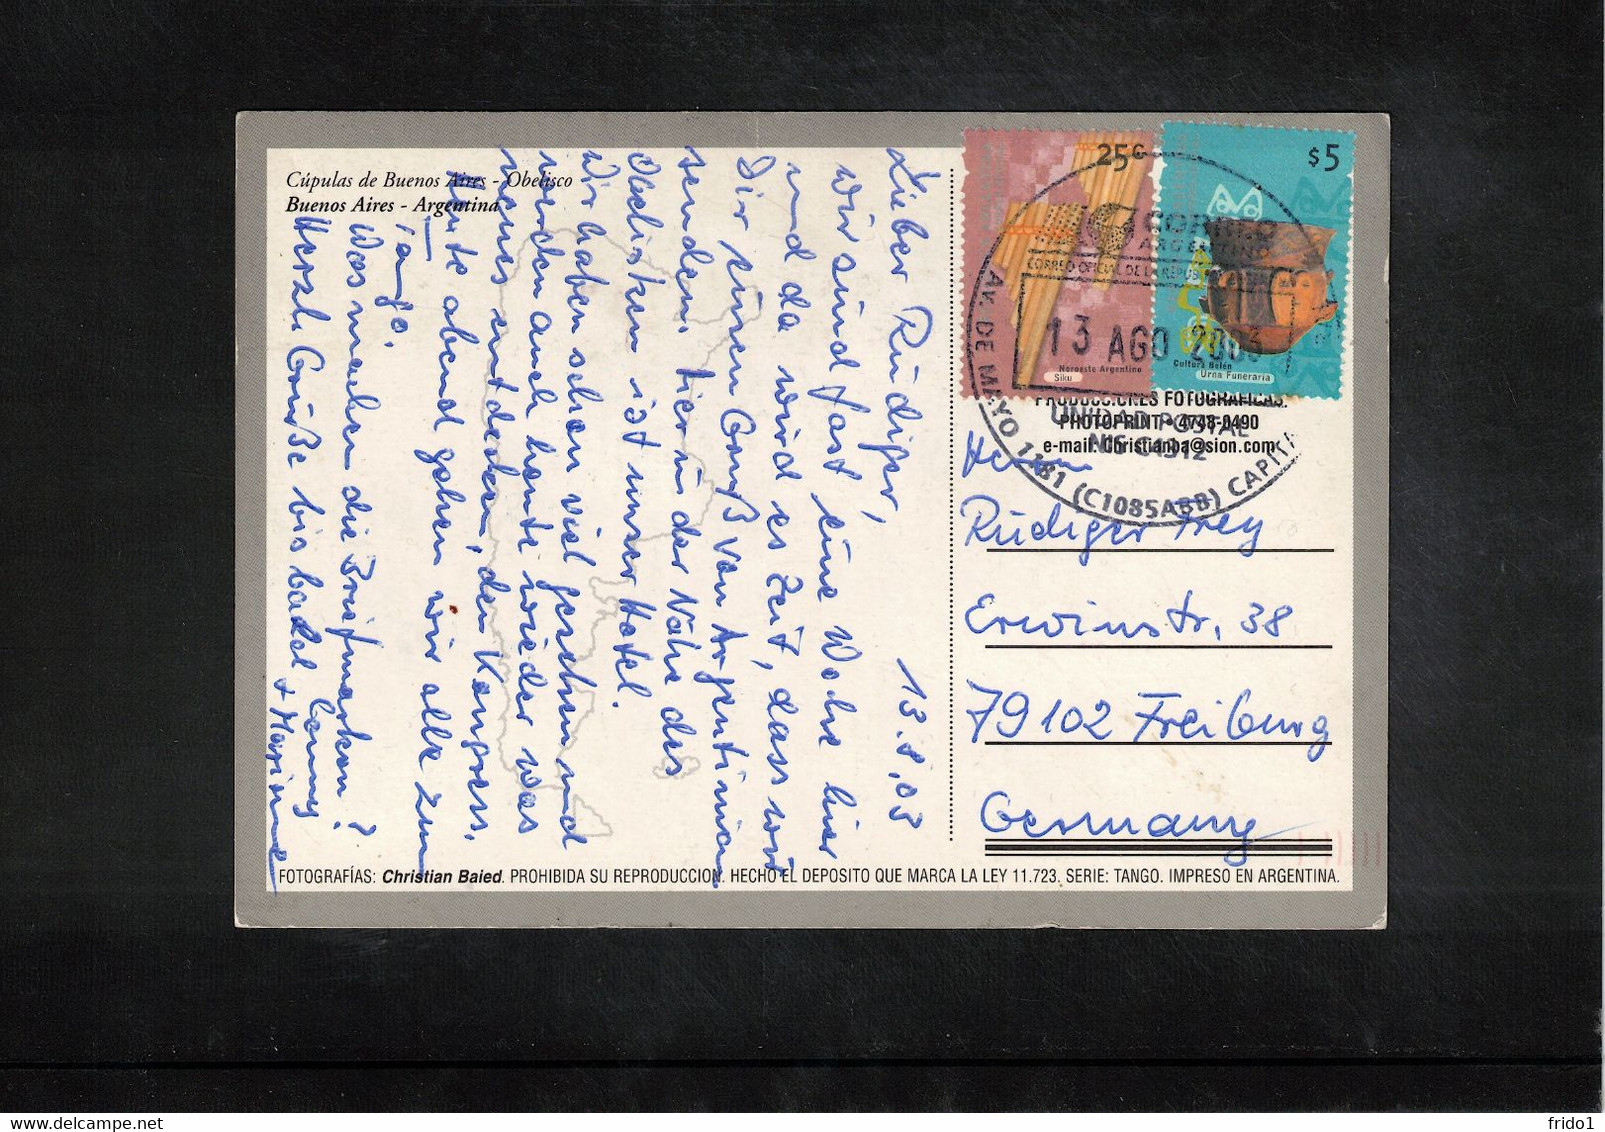 Cúpulas de Buenos Aires - Obelisco
Buenos Aires - Argentina
13.8.03
Lieber Rüdiger,
wir sind fast eine Woche hier
und da wird es Zeit, dass wir
Dir einen Gruß von Argentinien
senden. Hier in der Nähe des
Obelisken ist unser Hotel.
Wir haben schon viel gesehen und
werden auch heute wieder was
neues entdecken, den Kongress.
Heute abend gehen wir alle zum
Tango.
Was machen die Briefmarken?
Herzl. Grüße bis bald
+ Marinne
25c
Noroeste Argentino
Siku
$5
Cultura Belén
Urna Funeraria
CORREO
ARGENTINO
CORREO OFICIAL DE LA REPUB
13 AGO 2003
UNIDAD POSTAL
NIS C4312
AV. DE MAYO 1181 (C1085ABB) CAPITA
PRODUCCIONES FOTOGRAFICAS.
PHOTOPRINT • 4748-0490
e-mail: Christianba@sion.com
Herrn
Rüdiger Frey
Erwinstr. 38
79102 Freiburg
Germany
FOTOGRAFÍAS: Christian Baied. PROHIBIDA SU REPRODUCCION. HECHO EL DEPOSITO QUE MARCA LA LEY 11.723. SERIE: TANGO. IMPRESO EN ARGENTINA.
frido1